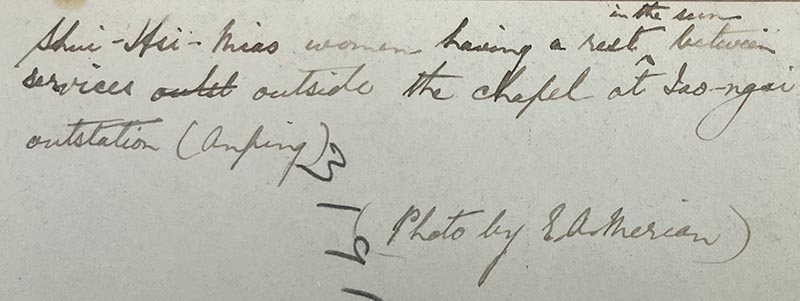 in the sun
Shui-Hsi-Miao women having a rest ^ between
services outst outside the chapel at Tao-ngai
outstation (Anping)
3191
(Photo by E.A. Merian)